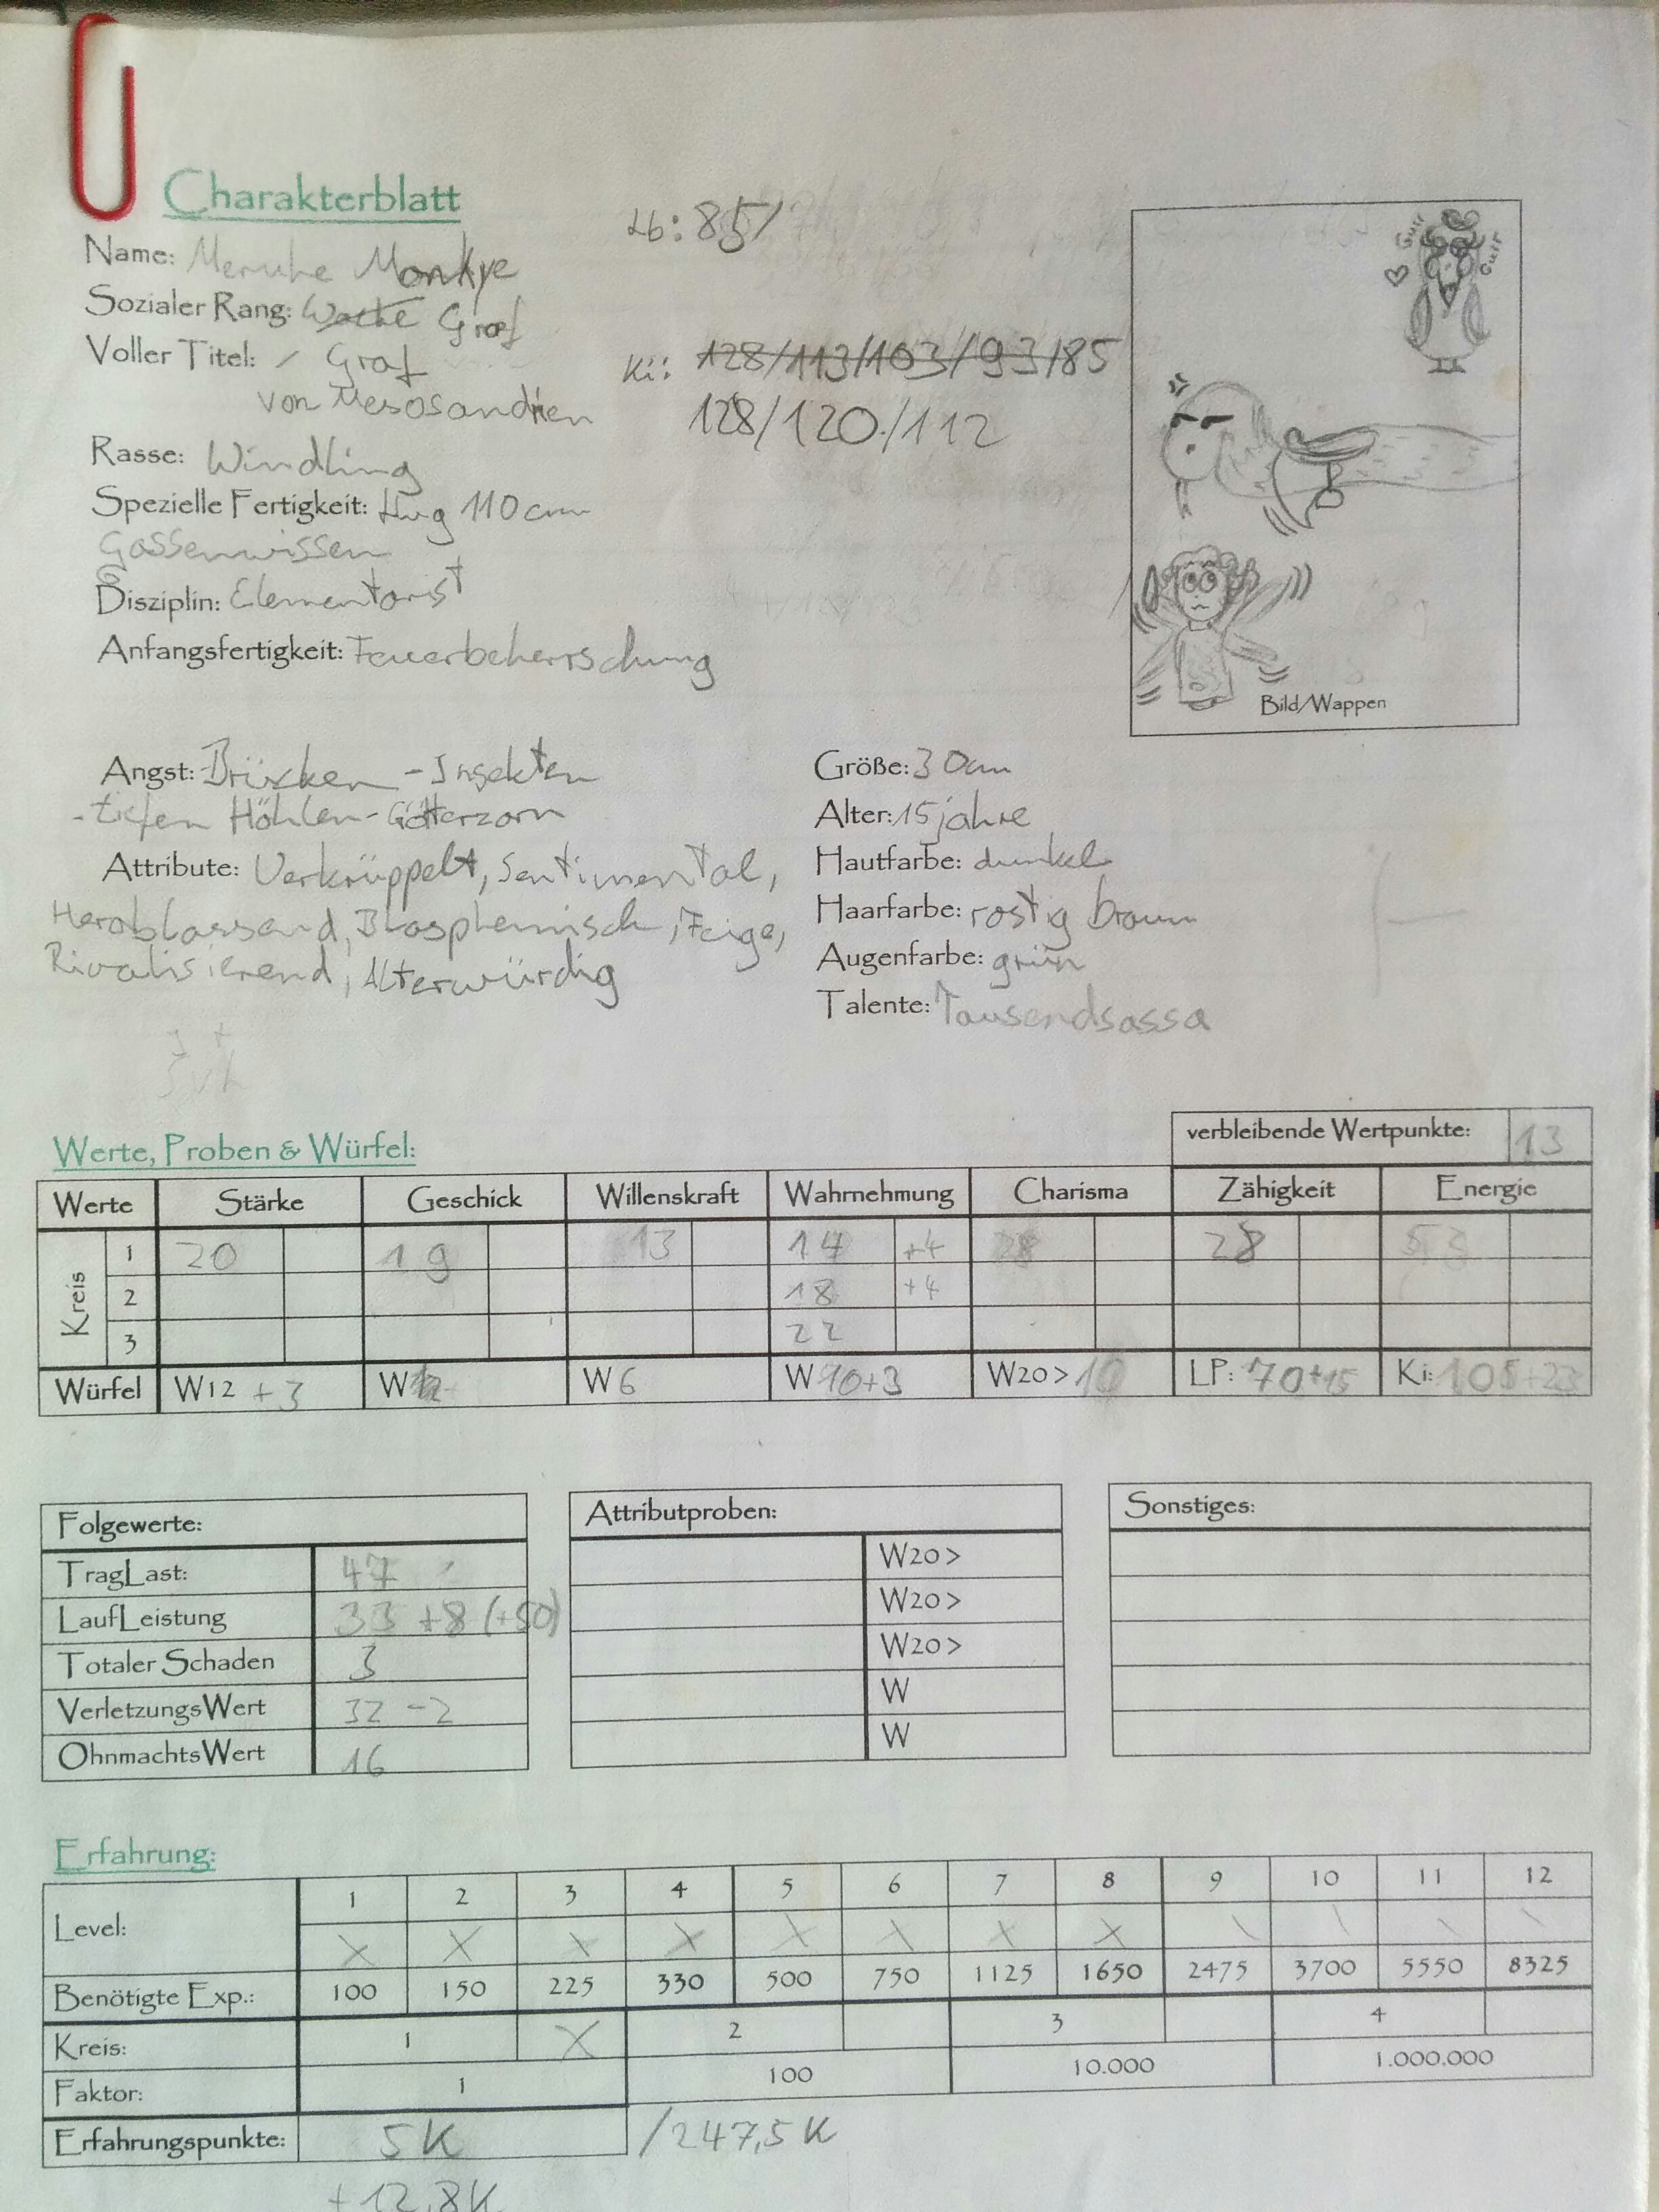 Charakterblatt
Lb: 85/
Name: Meruhe Monkye
Sozialer Rang: Wache Graf
Voller Titel: / Graf
von Mesosandrien
Ki: 128/113/103/93/85
128/120/112
Rasse: Windling
Spezielle Fertigkeit: Flug 110cm
Gassenwissen
Disziplin: Elementarist
Anfangsfertigkeit: Feuerbeherrschung
Gurr
Gurr
Bild/Wappen
Angst: Brücken - Insekten
- tiefen Höhlen - Götterzorn
Attribute: Verkrüppelt, Sentimental,
Herablassend, Blasphemisch, Feige,
Rivalisierend, Alterwürdig
Größe: 30cm
Alter: 15 jahre
Hautfarbe: dunkel
Haarfarbe: rostig braun
Augenfarbe: grün
Talente: Tausendsassa
Werte, Proben & Würfel:
verbleibende Wertpunkte: 13
Werte Stärke Geschick Willenskraft Wahrnehmung Charisma Zähigkeit Energie
Kreis
1 20 19 13 14 +4 28 28 53
2 18 +4
3 22
Würfel W12 +3 W12 W6 W10+3 W20>10 LP: 70+15 Ki: 105+23
Folgewerte:
TragLast: 47
LaufLeistung 33 +8 (+50)
Totaler Schaden 3
VerletzungsWert 32 -2
OhnmachtsWert 16
Attributproben:
W20>
W20>
W20>
W
W
Sonstiges:
Erfahrung:
Level: 1 2 3 4 5 6 7 8 9 10 11 12
X X X X X X X X \ \ \ \
Benötigte Exp.: 100 150 225 330 500 750 1125 1650 2475 3700 5550 8325
Kreis: 1 X 2 3 4
Faktor: 1 100 10.000 1.000.000
Erfahrungspunkte: 5K /247,5K
+12,8K